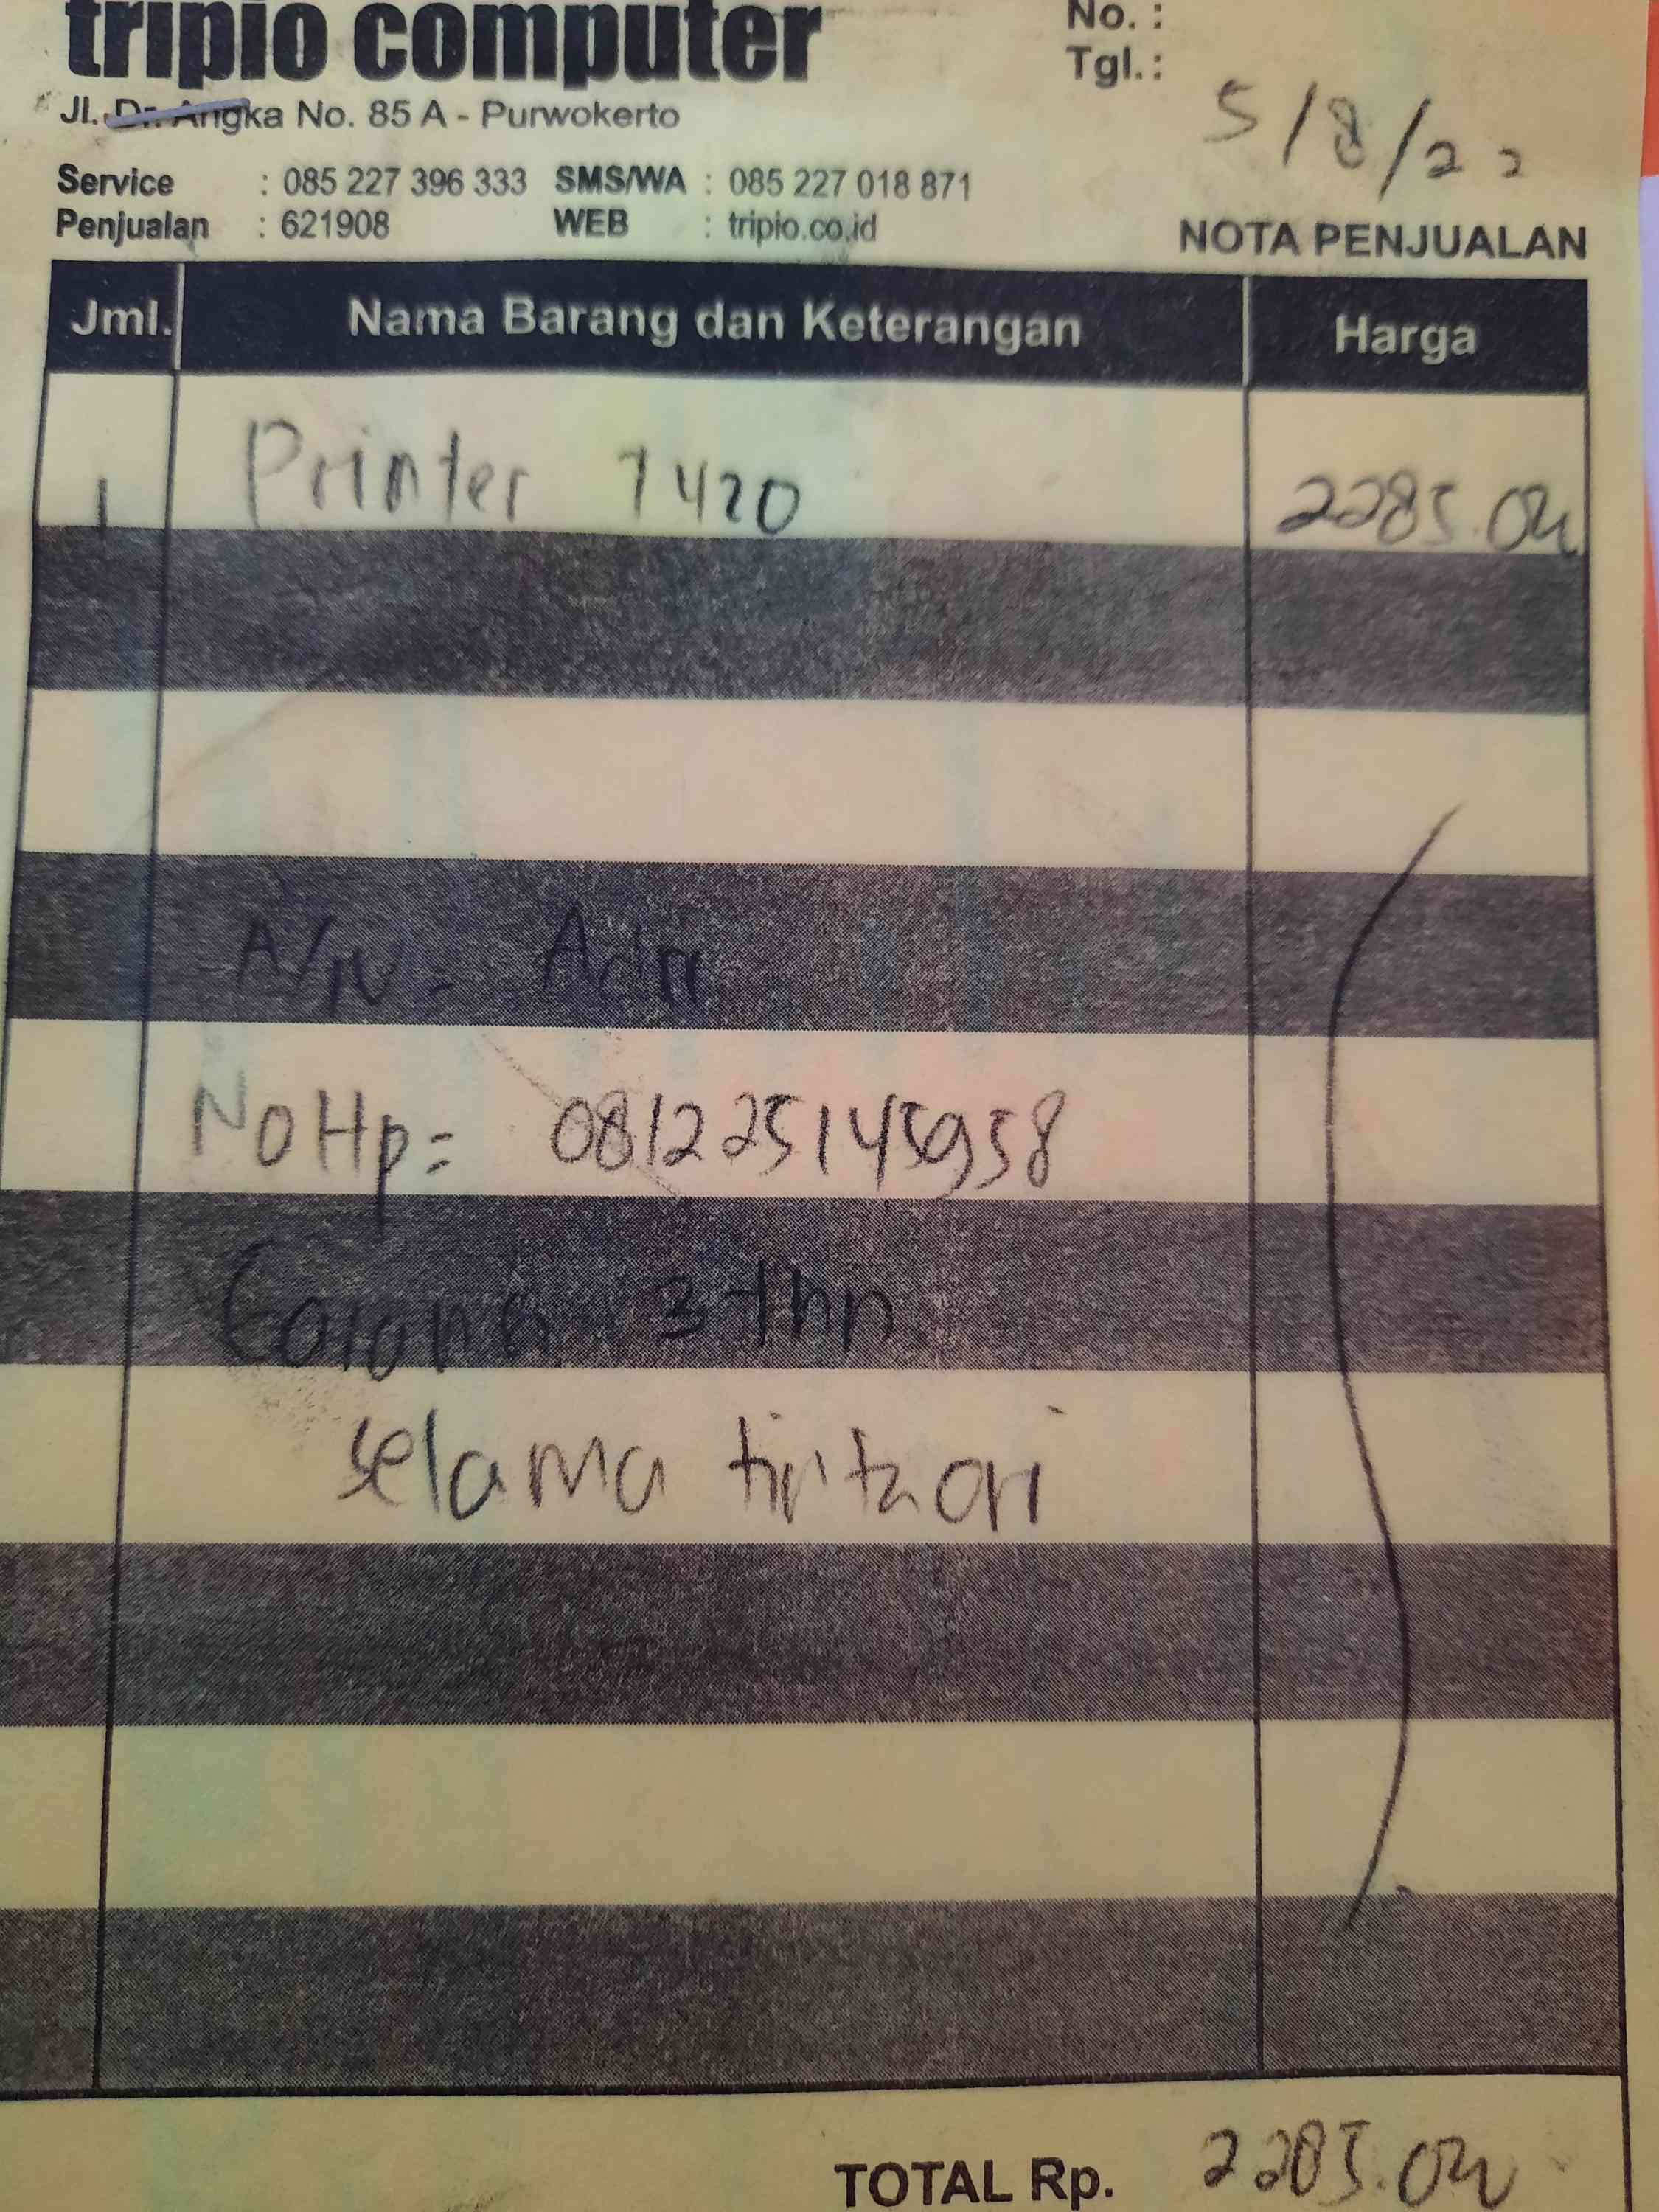 tripio computer
No. :
Tgl. : 5/8/22
Jl. Dr. Angka No. 85 A - Purwokerto
Service : 085 227 396 333 SMS/WA : 085 227 018 871
Penjualan : 621908 WEB : tripio.co.id
NOTA PENJUALAN
Jml. Nama Barang dan Keterangan Harga
1 Printer 1420 2285.00
A/N =
NO Hp = 081225145958
3 thn
selama tinta ori
TOTAL Rp. 2285.00